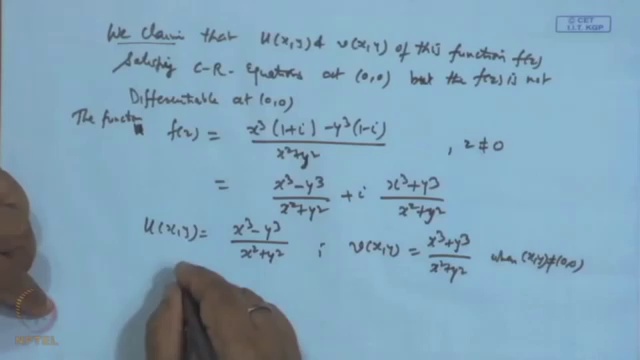 © CET
I.I.T. KGP
We claim that u(x,y) & v(x,y) of this function f(z)
Satisfying C-R- Equations at (0,0) but the f(z) is not
Differentiable at (0,0)
The function f(z) = x³(1+i) - y³(1-i) / x²+y² , z ≠ 0
= x³-y³ / x²+y² + i x³+y³ / x²+y²
u(x,y) = x³-y³ / x²+y² ; v(x,y) = x³+y³ / x²+y² when (x,y)≠(0,0)
NPTEL